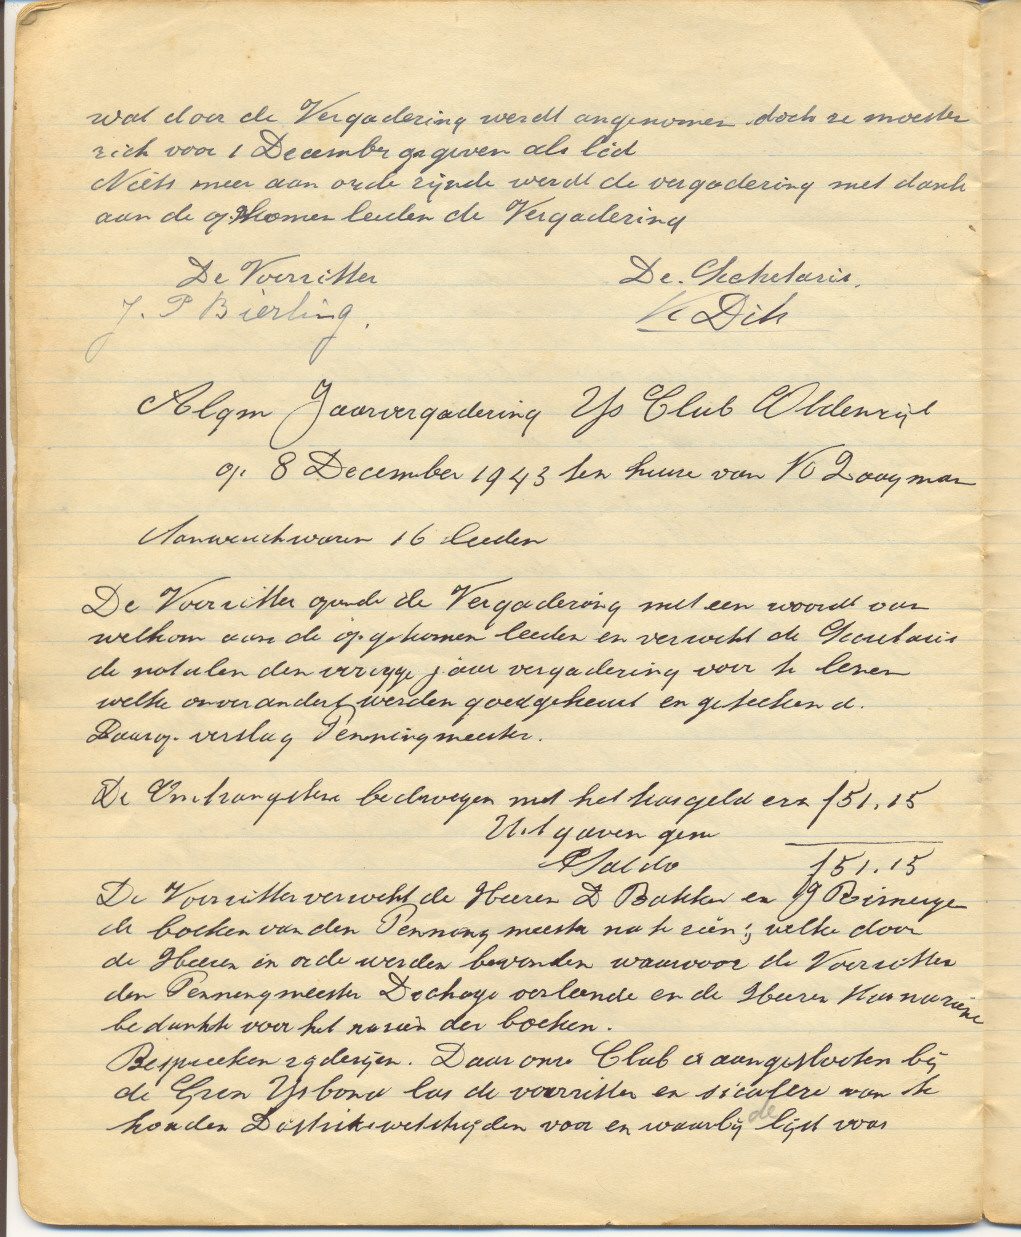 wat door de Vergadering werdt angenomen doch ze moesten
zich voor 1 December opgeven als lid
Niets meer aan orde zijnde werdt de vergadering met dank
aan de opgekomen leeden de Vergadering
De Voorzitter De. Sekretaris.
J. P Bierling. K Dik
Algm Jaarvergadering Ijs Club Oldenzijl
op 8 December 1943 ten huise van K Zaagman
Aanweseh waren 16 leeden
De Voorzitter opende de Vergadering met een woordt van
welkom aan de opgekomen leeden en verzocht de Secretaris
de notulen den vorigge jaar vergadering voor te lesen
welke onverandert werden goedgekeurt en geteekend.
Daarop verslag Penningmeester.
De Ontvangsten bedroegen met het kasgeld een f 51.15
Uitgaven geen
Saldo f 51.15
De Voorzitter verzocht de Heeren D Bakker en
de boeken van den Penningmeester na te zien; welke door
de Heeren in orde werden bevonden waarvoor de Voorzitter
den Penningmeester Dechage verleende en de Heeren
bedankte voor het nazien der boeken.
Bespreeken Daar onze Club is aangeslooten bij
de Gron Ijsbond las de voorzitter en sicülere van te
houden Distrikswetstrijden voor en waarbij de lijst voor